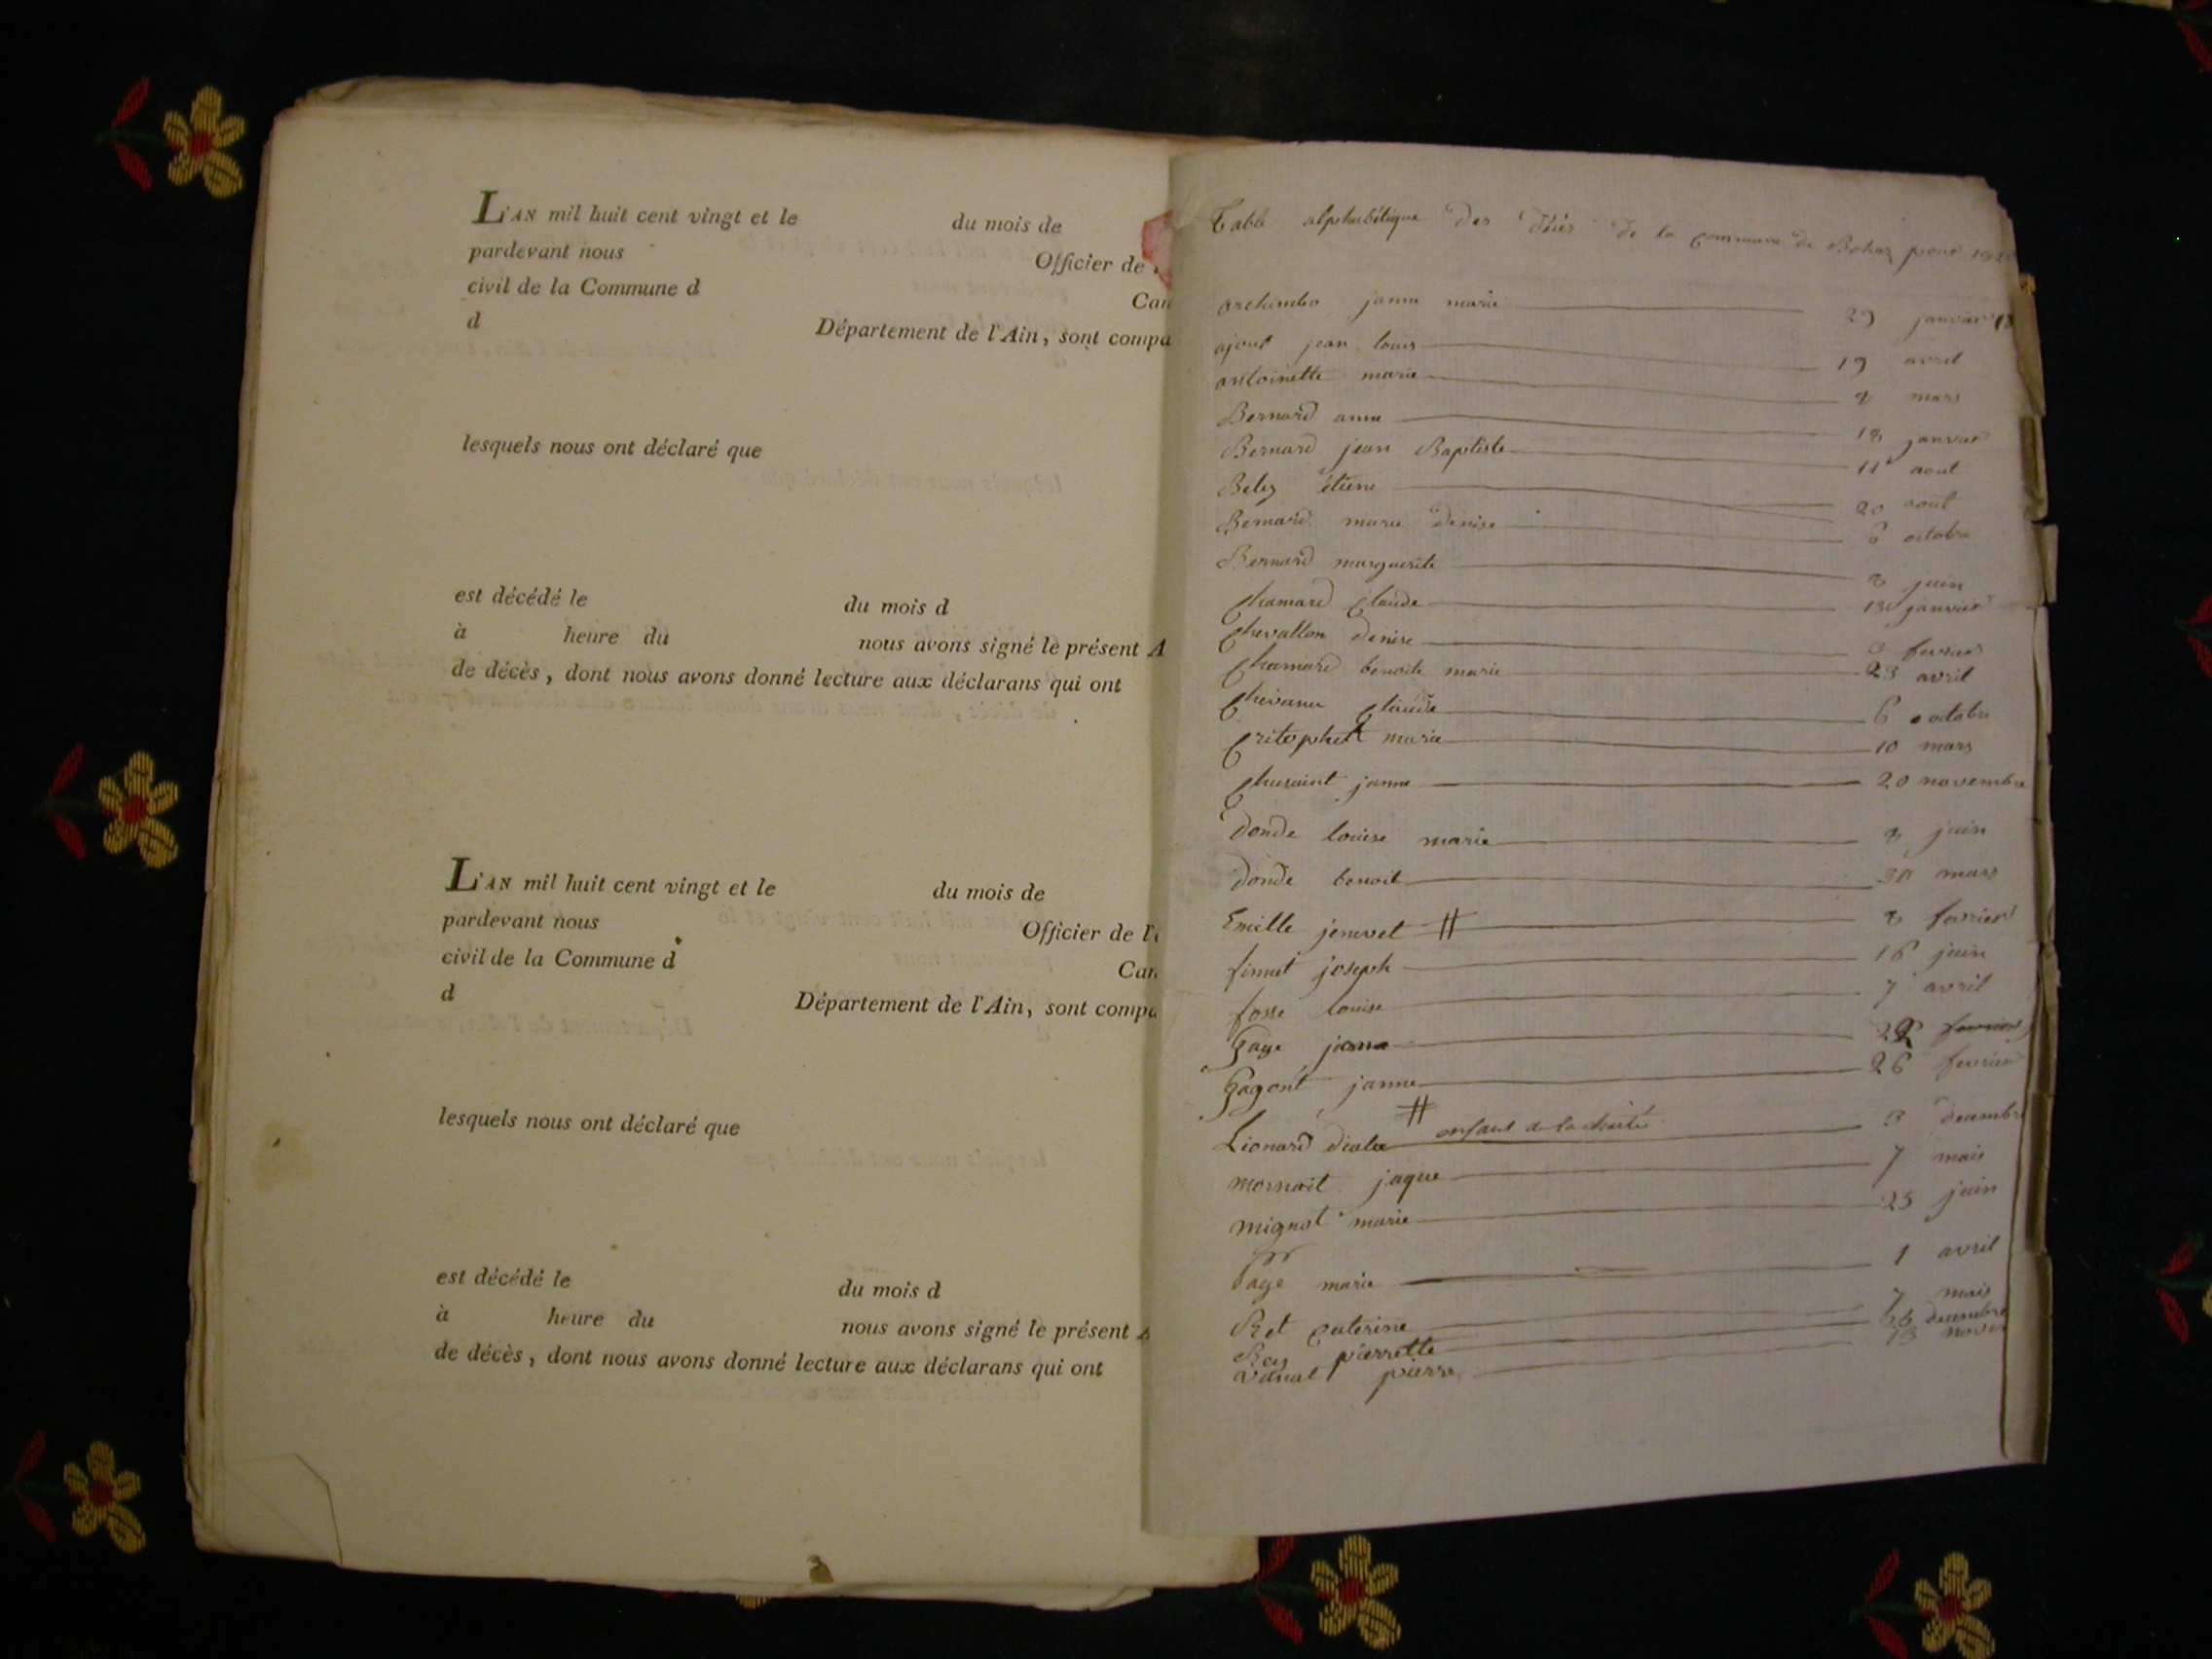 L'AN mil huit cent vingt et le du mois de
pardevant nous Officier de
civil de la Commune d Can
d Département de l'Ain, sont compa
lesquels nous ont déclaré que
est décédé le du mois d
à heure du nous avons signé le présent A
de décès, dont nous avons donné lecture aux déclarans qui ont
L'AN mil huit cent vingt et le du mois de
pardevant nous Officier de l'
civil de la Commune d Can
d Département de l'Ain, sont compa
lesquels nous ont déclaré que
est décédé le du mois d
à heure du nous avons signé le présent A
de décès, dont nous avons donné lecture aux déclarans qui ont
Table alphabétique des de la commune de Bohas pour
janne marie 29 janvier
jean louis 19 avril
antoinette marie mars
Bernard anne 18 janvier
Bernard jean Baptiste 11 aout
étiene 20 aout
Bernard marie denise 6 octobre
Bernard marguerite juin
Chamard Claude janvier
Chevallon denise fevrier
Chamard benoite marie 23 avril
Claude 6 octobre
Critophet marie 10 mars
janne 20 novembre
donde louise marie juin
donde benoit 30 mars
Emille jenevet # fevrier
joseph 16 juin
fosse louise 7 avril
Gage janne fevrier
janne 26 fevrier
# enfant de la charité
Lionard 3 decembre
jaque 7 mais
mignot marie 23 juin
page marie 1 avril
Ret Caterine 7 mais
Rey pierrette decembre
pierre 13